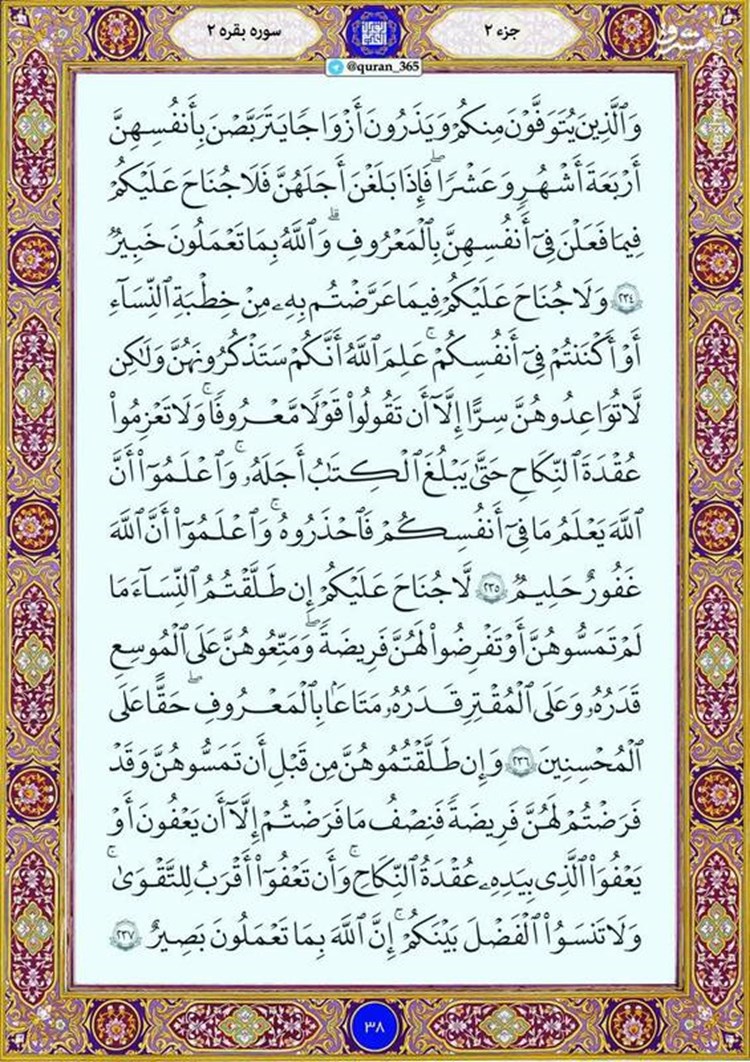 جزء ۲
سوره بقره ۲
@quran_365
وَٱلَّذِينَ يُتَوَفَّوۡنَ مِنكُمۡ وَيَذَرُونَ أَزۡوَٰجٗا يَتَرَبَّصۡنَ بِأَنفُسِهِنَّ
أَرۡبَعَةَ أَشۡهُرٖ وَعَشۡرٗاۖ فَإِذَا بَلَغۡنَ أَجَلَهُنَّ فَلَا جُنَاحَ عَلَيۡكُمۡ
فِيمَا فَعَلۡنَ فِيٓ أَنفُسِهِنَّ بِٱلۡمَعۡرُوفِۗ وَٱللَّهُ بِمَا تَعۡمَلُونَ خَبِيرٞ
۲۳٤ وَلَا جُنَاحَ عَلَيۡكُمۡ فِيمَا عَرَّضۡتُم بِهِۦ مِنۡ خِطۡبَةِ ٱلنِّسَآءِ
أَوۡ أَكۡنَنتُمۡ فِيٓ أَنفُسِكُمۡۚ عَلِمَ ٱللَّهُ أَنَّكُمۡ سَتَذۡكُرُونَهُنَّ وَلَٰكِن
لَّا تُوَاعِدُوهُنَّ سِرًّا إِلَّآ أَن تَقُولُواْ قَوۡلٗا مَّعۡرُوفٗاۚ وَلَا تَعۡزِمُواْ
عُقۡدَةَ ٱلنِّكَاحِ حَتَّىٰ يَبۡلُغَ ٱلۡكِتَٰبُ أَجَلَهُۥۚ وَٱعۡلَمُوٓاْ أَنَّ
ٱللَّهَ يَعۡلَمُ مَا فِيٓ أَنفُسِكُمۡ فَٱحۡذَرُوهُۚ وَٱعۡلَمُوٓاْ أَنَّ ٱللَّهَ
غَفُورٌ حَلِيمٞ ۲۳٥ لَّا جُنَاحَ عَلَيۡكُمۡ إِن طَلَّقۡتُمُ ٱلنِّسَآءَ مَا
لَمۡ تَمَسُّوهُنَّ أَوۡ تَفۡرِضُواْ لَهُنَّ فَرِيضَةٗۚ وَمَتِّعُوهُنَّ عَلَى ٱلۡمُوسِعِ
قَدَرُهُۥ وَعَلَى ٱلۡمُقۡتِرِ قَدَرُهُۥ مَتَٰعَۢا بِٱلۡمَعۡرُوفِۖ حَقًّا عَلَى
ٱلۡمُحۡسِنِينَ ۲۳٦ وَإِن طَلَّقۡتُمُوهُنَّ مِن قَبۡلِ أَن تَمَسُّوهُنَّ وَقَدۡ
فَرَضۡتُمۡ لَهُنَّ فَرِيضَةٗ فَنِصۡفُ مَا فَرَضۡتُمۡ إِلَّآ أَن يَعۡفُونَ أَوۡ
يَعۡفُوَاْ ٱلَّذِي بِيَدِهِۦ عُقۡدَةُ ٱلنِّكَاحِۚ وَأَن تَعۡفُوٓاْ أَقۡرَبُ لِلتَّقۡوَىٰۚ
وَلَا تَنسَوُاْ ٱلۡفَضۡلَ بَيۡنَكُمۡۚ إِنَّ ٱللَّهَ بِمَا تَعۡمَلُونَ بَصِيرٌ ۲۳۷
۳۸